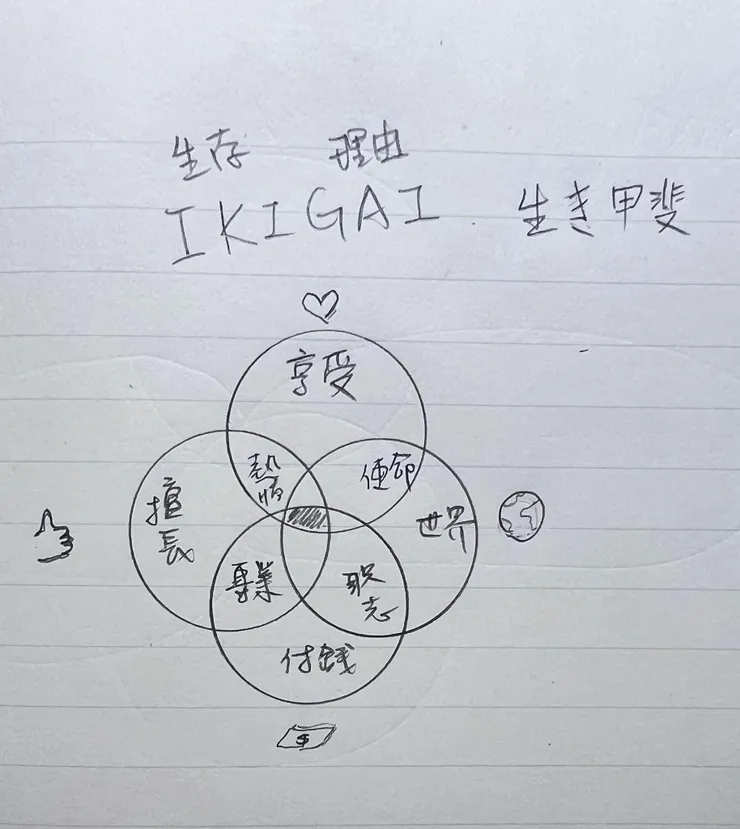 生存 理由
IKIGAI 生き甲斐
享受
熱情 使命
擅長 世界
專業 职志
付錢
$